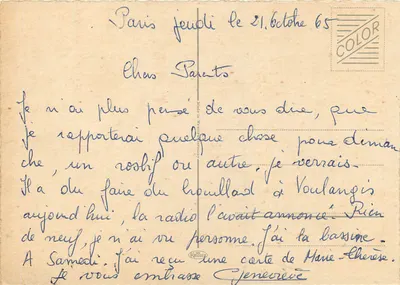 Paris jeudi le 21.Octobre 65
COLOR
Chers Parents
Je n'ai plus pensé de vous dire, que
je rapporterai quelque chose pour diman
che, un rostif ou autre, je verrais.
Il a du faire du brouillard à Voulangis
aujourd'hui, la radio l'avait annoncé. Rien
de neuf, je n'ai vu personne. J'ai la bassine.
A Samedi. J'ai reçu une carte de Marie-Thérèse.
Je vous embrasse Geneviève